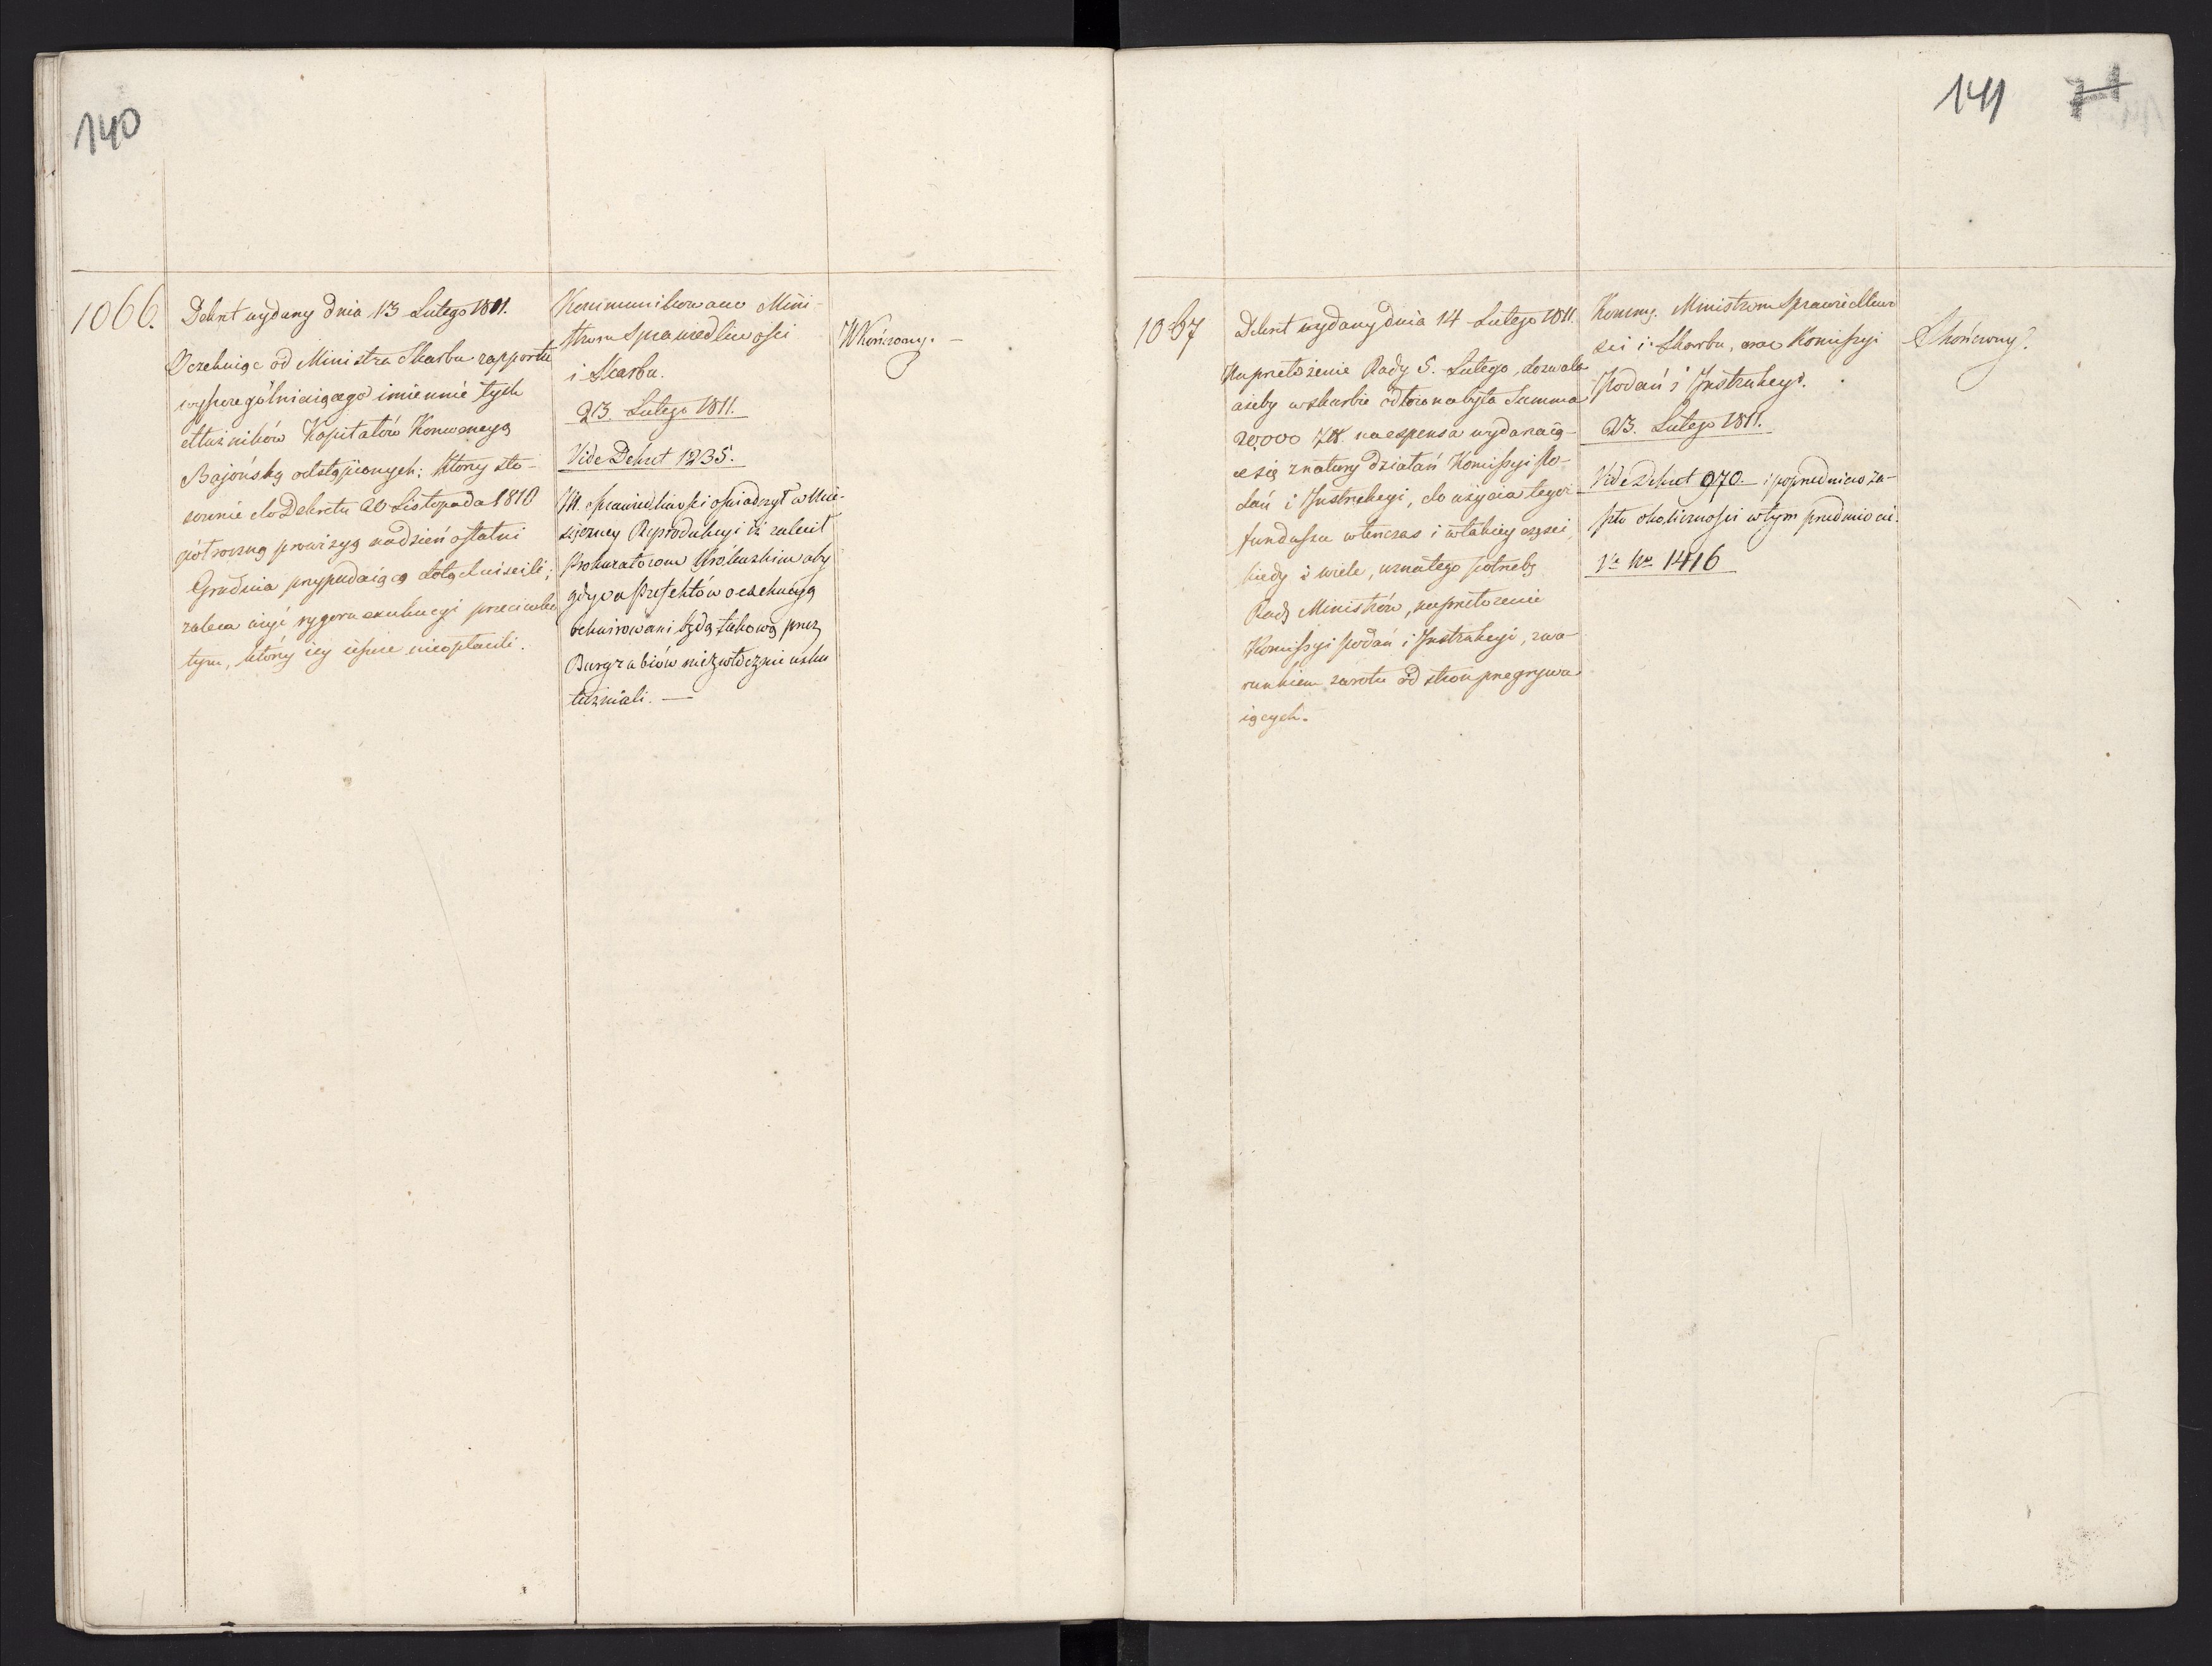 140
1066.
Dekret wydany dnia 13 Lutego 1811.
Oczekuiąc od Ministra Skarbu rapportu
wyszczególniaiącego imiennie tych
dłużników Kapitałów Konwencyą
Bajońską odstąpionych; którzy sto-
sownie do Dekretu 20 Listopada 1810
półroczną prowizyą na dzień ostatni
Grudnia przypadaiącą dotąd uiścili;
zaleca użyć rygoru exekucyi przeciwko
tym, którzy iey ieszcze nieopłacili.
Kommunikowano Mini-
strom Sprawiedliwości
i Skarbu.
23. Lutego 1811.
Vide Dekret 1235.
M. Sprawiedliwości oświadczył w Mie-
sięczney Reprodukcyi iż zalecił
Prokuratorom Królewskim aby
gdy od Prefektów o exekucyą
rekwirowani będą takową przez
Burgrabiów niezwłocznie usku
teczniali. —
Wkończony. —
141 71
1067
Dekret wydany dnia 14 Lutego 1811.
Na przełożenie Rady 5. Lutego, dozwala
ażeby w skarbie odłożona była Summa
20,000 Zł. na expensa wydarzaią-
ce się z natury działań Komissyi Po-
dań i Instrukcyi, do użycia tego
funduszu wtenczas i w takiey części,
kiedy i wiele, uzna tego potrzebę
Rada Ministrów, na przełożenie
Komissyi Podań i Instrukcyi, z wa-
runkiem zwrotu od stron przegrywa
iących.
Kommu. Ministrom Sprawiedliwo
ści i Skarbu, oraz Komissyi
Podań i Instrukcyi.
23. Lutego 1811.
Vide Dekret 970. i poprzednicze za-
szłe okoliczności w tym przedmiocie.
Vе No 1416
Skończony.